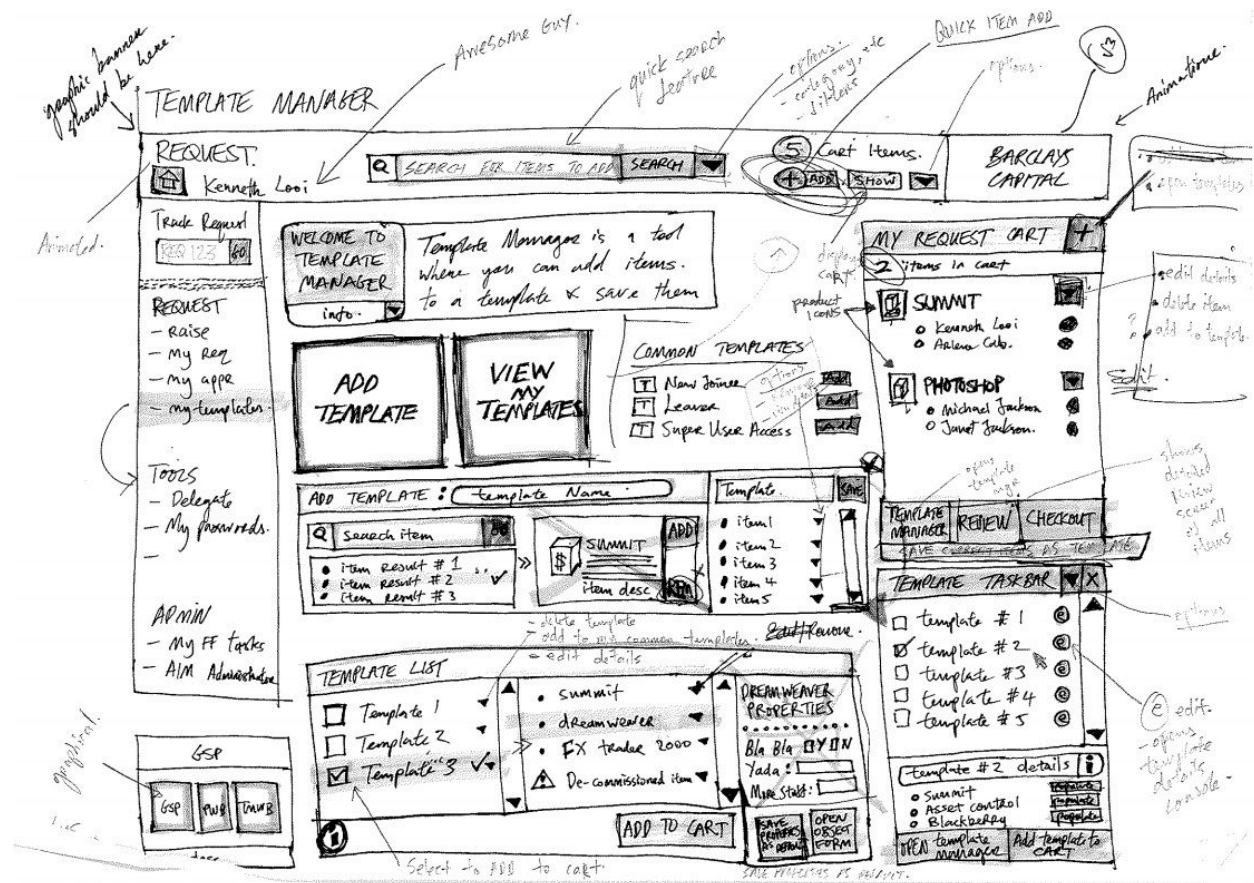 graphic banner
should be here.
Awesome Guy.
quick search
feature
options.
- category, etc
- filters
QUICK ITEM ADD
options.
Animation.
TEMPLATE MANAGER
REQUEST.
Kenneth Looi
Q SEARCH FOR ITEMS TO ADD SEARCH
5 Cart Items.
+ ADD SHOW
BARCLAYS
CAPITAL
Animated.
Track Request
REQ 123 GO
REQUEST
- Raise
- My Req
- my appr
- my templates.
TOOLS
- Delegate
- My passwords.
-
ADMIN
- My FF tasks
- AIM Administrator
graphical.
GSP
GSP PWB TMWB
WELCOME TO
TEMPLATE
MANAGER
info.
Template Manager is a tool
where you can add items.
to a template & save them
ADD
TEMPLATE
VIEW
MY
TEMPLATES
COMMON TEMPLATES
T New Joiner Add
T Leaver Add
T Super User Access Add
options
product
icons
cart
MY REQUEST CART +
2 items in cart
SUMMIT
Kenneth Looi
PHOTOSHOP
Michael Jackson
Janet Jackson.
TEMPLATE
MANAGER
REVIEW
CHECKOUT
SAVE CURRENT ITEMS AS TEMPLATE
open templates
edit details
delete item
add to template.
Edit.
shows
detailed
review
screen
of all
items
ADD TEMPLATE : template Name
Q search item GO
item result # 1
item result # 2
item result # 3
SUMMIT
item desc
ADD
Template. SAVE
item1
item 2
item 3
item 4
item 5
- delete template
- add to my common templates.
- edit details
Edit/Remove.
TEMPLATE LIST
Template 1
Template 2
Template 3
summit
dreamweaver
FX trader 2000
De-commissioned item
DREAMWEAVER
PROPERTIES
Bla Bla Y N
Yada :
More Stuff:
i
ADD TO CART
SAVE
PROPERTIES
AS DEFAULT
OPEN
OBJECT
FORM
Select to ADD to cart
SAVE PROPERTIES AS DEFAULT.
TEMPLATE TASKBAR X
template # 1 e
template # 2 e
template # 3 e
template # 4 e
template # 5 e
options
e edit.
- opens
template
details
console.
template #2 details i
Summit populate
Asset control populate
Blackberry populate
OPEN template
manager
Add template to
CART